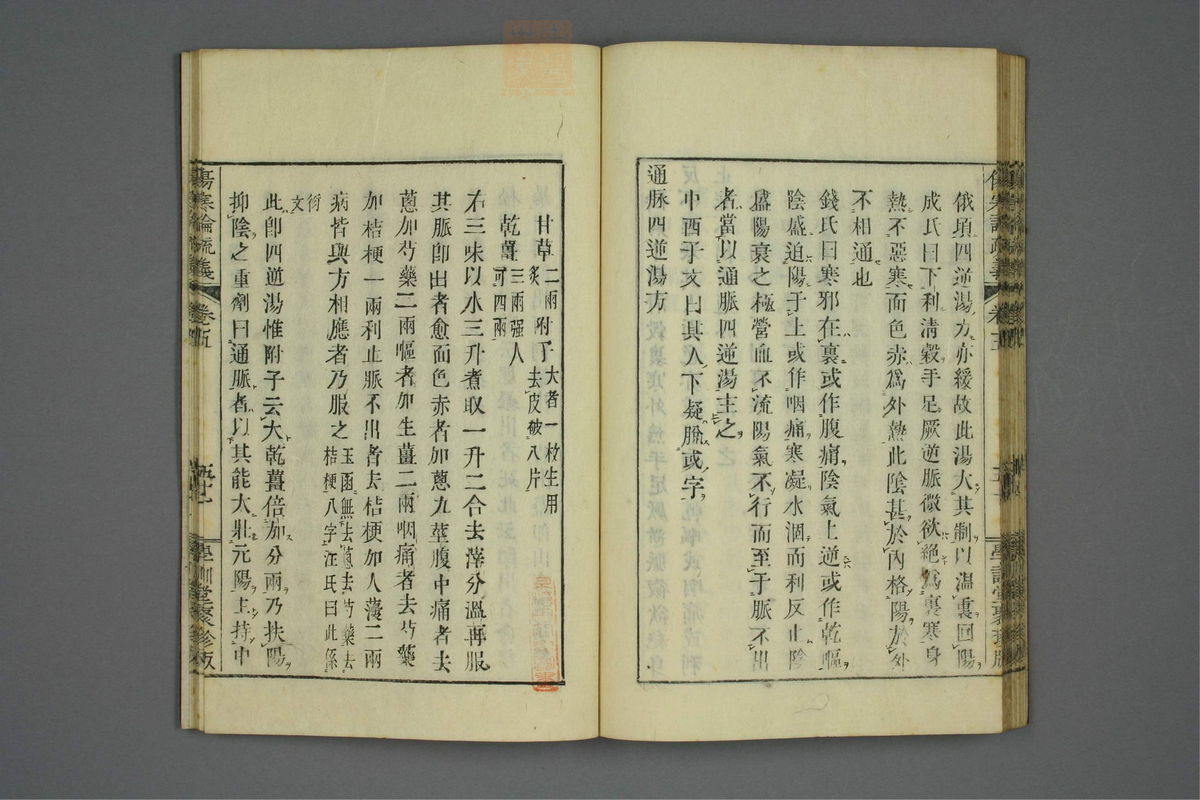 俄頃四逆湯方亦緩故此湯大其制以溫裏回陽
成氏曰下利清穀手足厥逆脈微欲絕爲裏寒身
熱不惡寒而色赤爲外熱此陰甚於內格陽於外
不相通也
錢氏曰寒邪在裏或作腹痛陰氣上逆或作乾嘔
陰盛迫陽于上或作咽痛寒凝水涸而利反止陰
盛陽衰之極營血不流陽氣不行而至于脈不出
者當以通脈四逆湯主之
中西子文曰其人下疑脫或字
通脈四逆湯方
甘草二兩炙 附子大者一枚生用去皮破八片
乾薑三兩强人可四兩
右三味以水三升煮取一升二合去滓分溫再服
其脈卽出者愈面色赤者加蔥九莖腹中痛者去
蔥加芍藥二兩嘔者加生薑二兩咽痛者去芍藥
加桔梗一兩利止脈不出者去桔梗加人薓二兩
病皆與方相應者乃服之玉函無去蔥去芍藥去桔梗八字汪氏曰此係
衍文
此卽四逆湯惟附子云大乾薑倍加分兩乃扶陽
抑陰之重劑曰通脈者以其能大壯元陽主持中
傷寒論疏義
卷五
學訓堂聚珍版